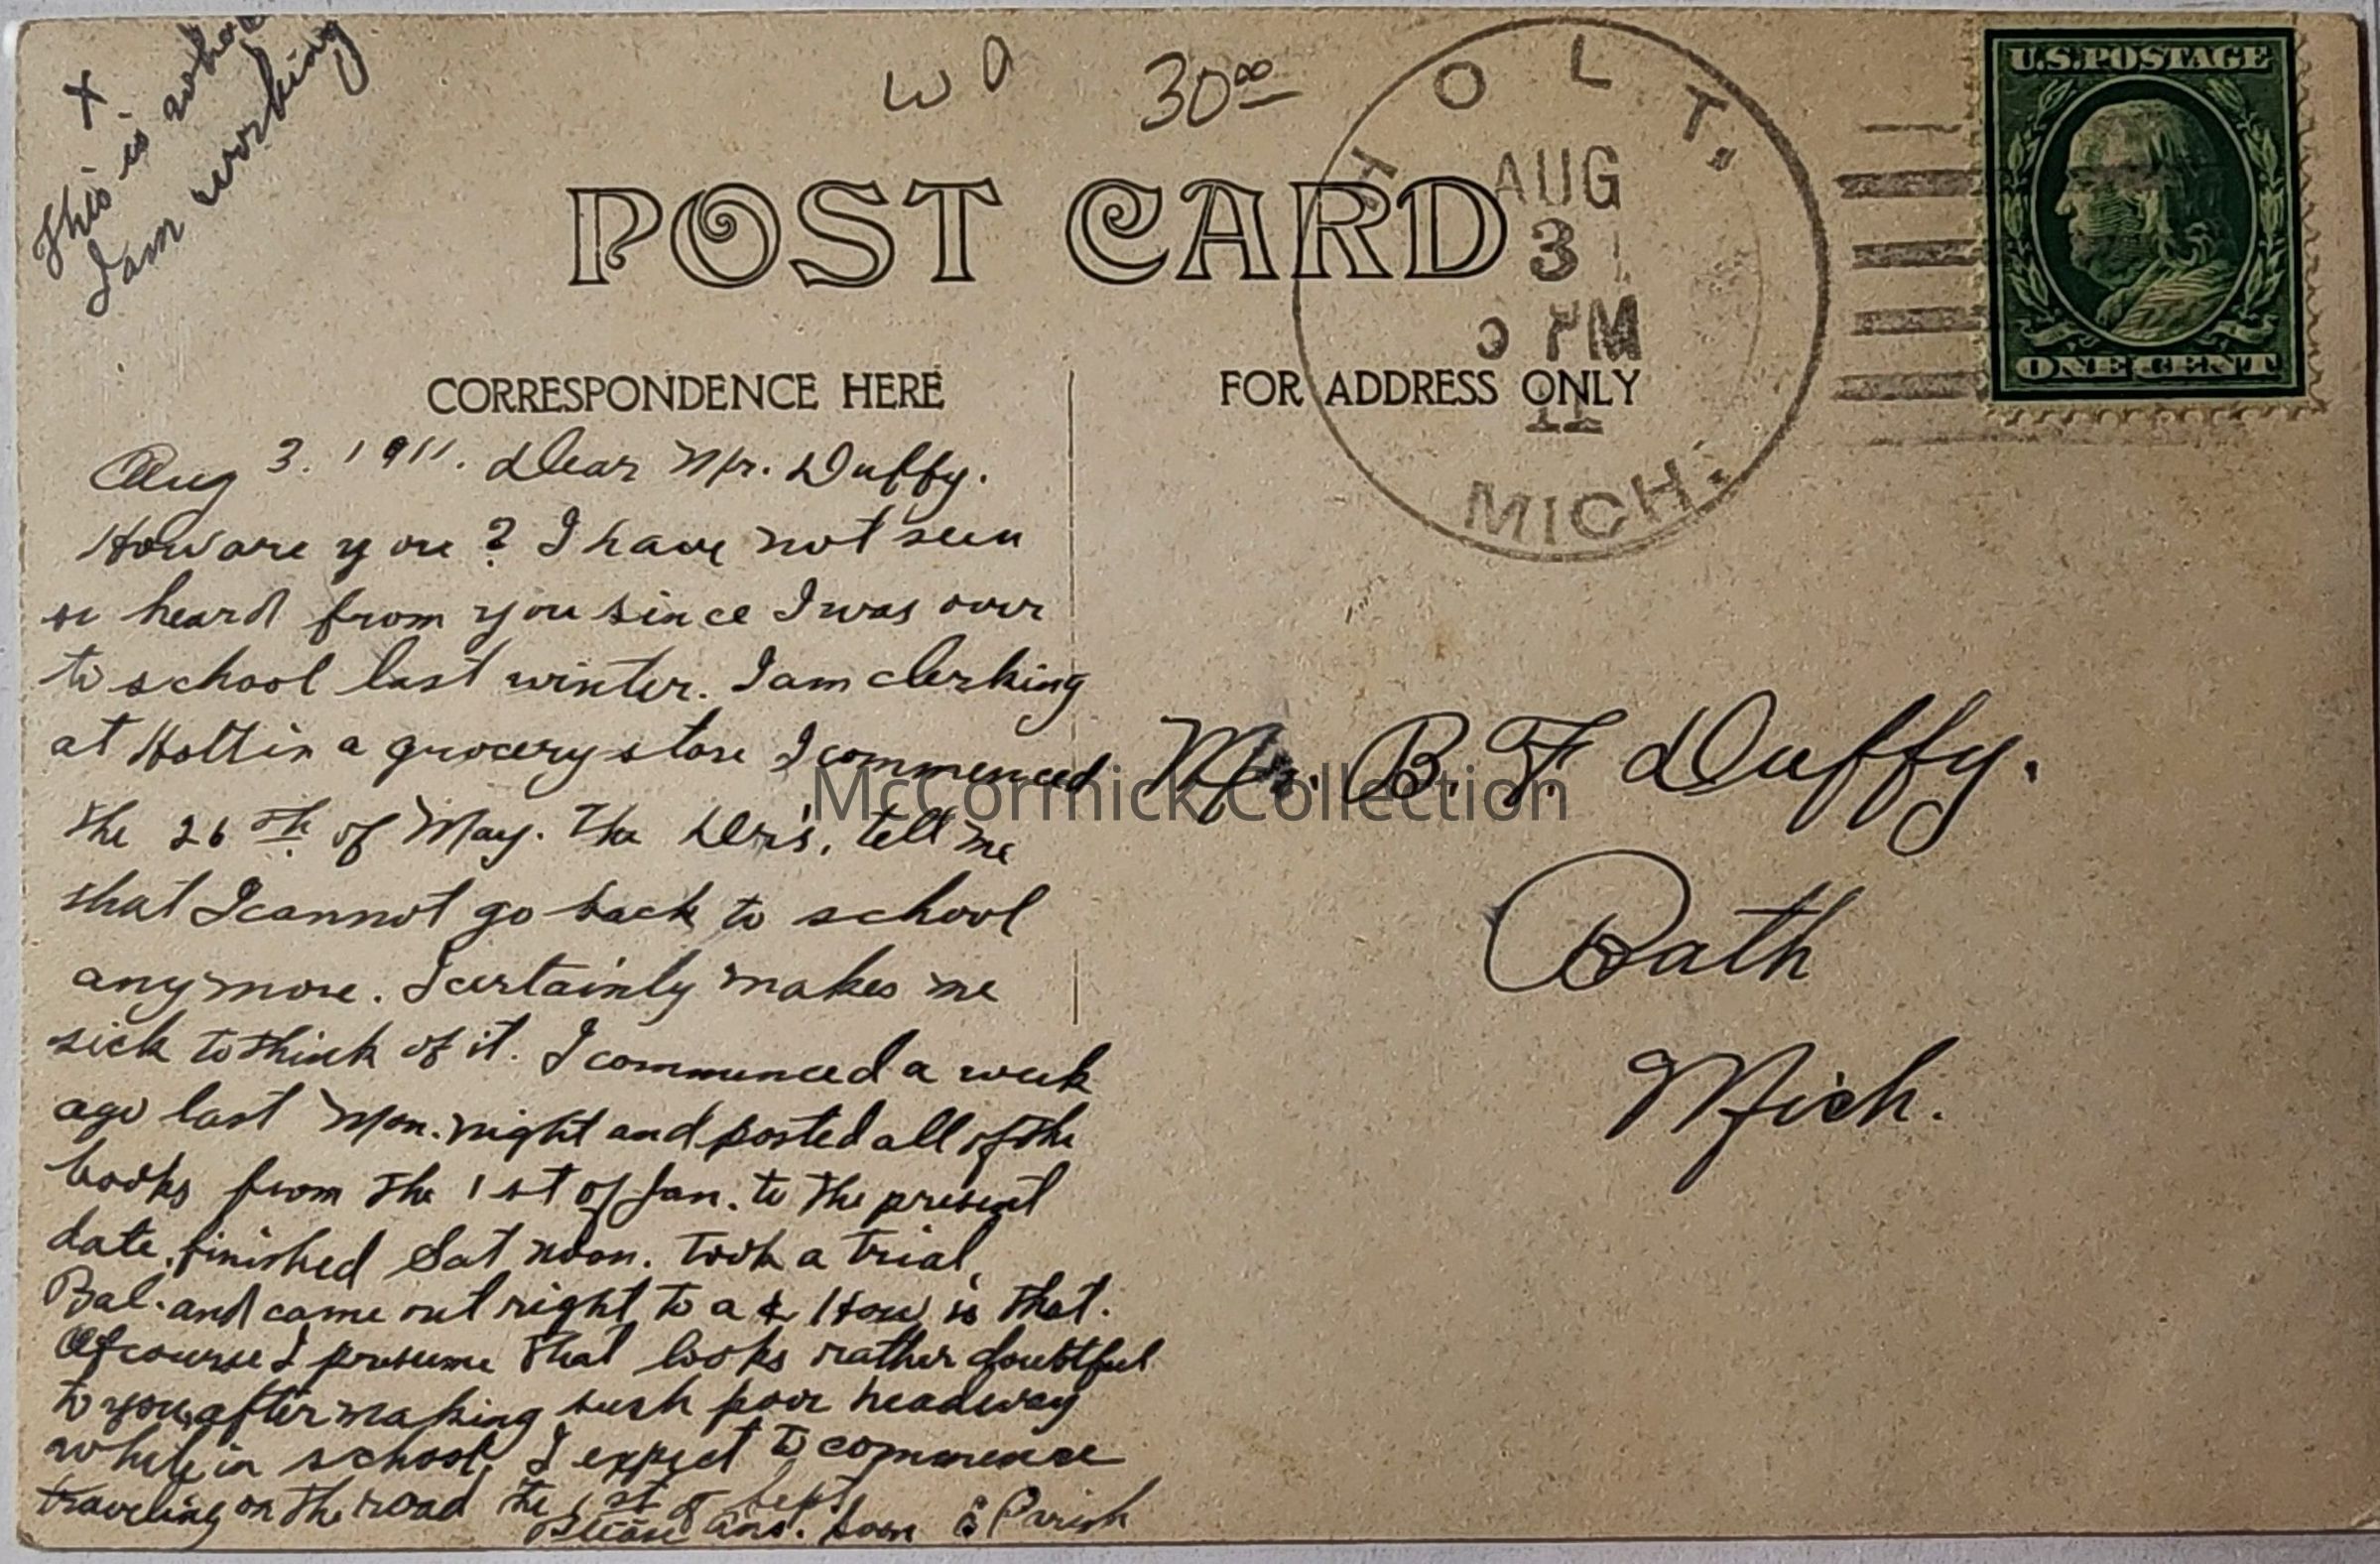 x
This is where
I am working
W a 30 00
HOLT.
AUG
3
PM
11
MICH.
U.S. POSTAGE
ONE CENT
POST CARD
CORRESPONDENCE HERE
FOR ADDRESS ONLY
Aug 3. 1911. Dear Mr. Duffy.
How are you? I have not seen
or heard from you since I was over
to school last winter. I am clerking
at Holt in a grocery store I commenced
the 26th of May. The Drs, tell me
that I cannot go back to school
anymore. I certainly makes me
sick to think of it. I commenced a week
ago last Mon. night and posted all of the
books from the 1st of Jan. to the present
date, finished Sat noon. Took a trial
Bal. and came out right to a ¢ How is that.
Of course I presume that looks rather doubtful
to you, after making such poor headway
while in school, I expect to commence
traveling on the road the 1st of Sept
Please ans. soon Parish
Mr. B. F. Duffy.
Bath
Mich.
McCormick Collection